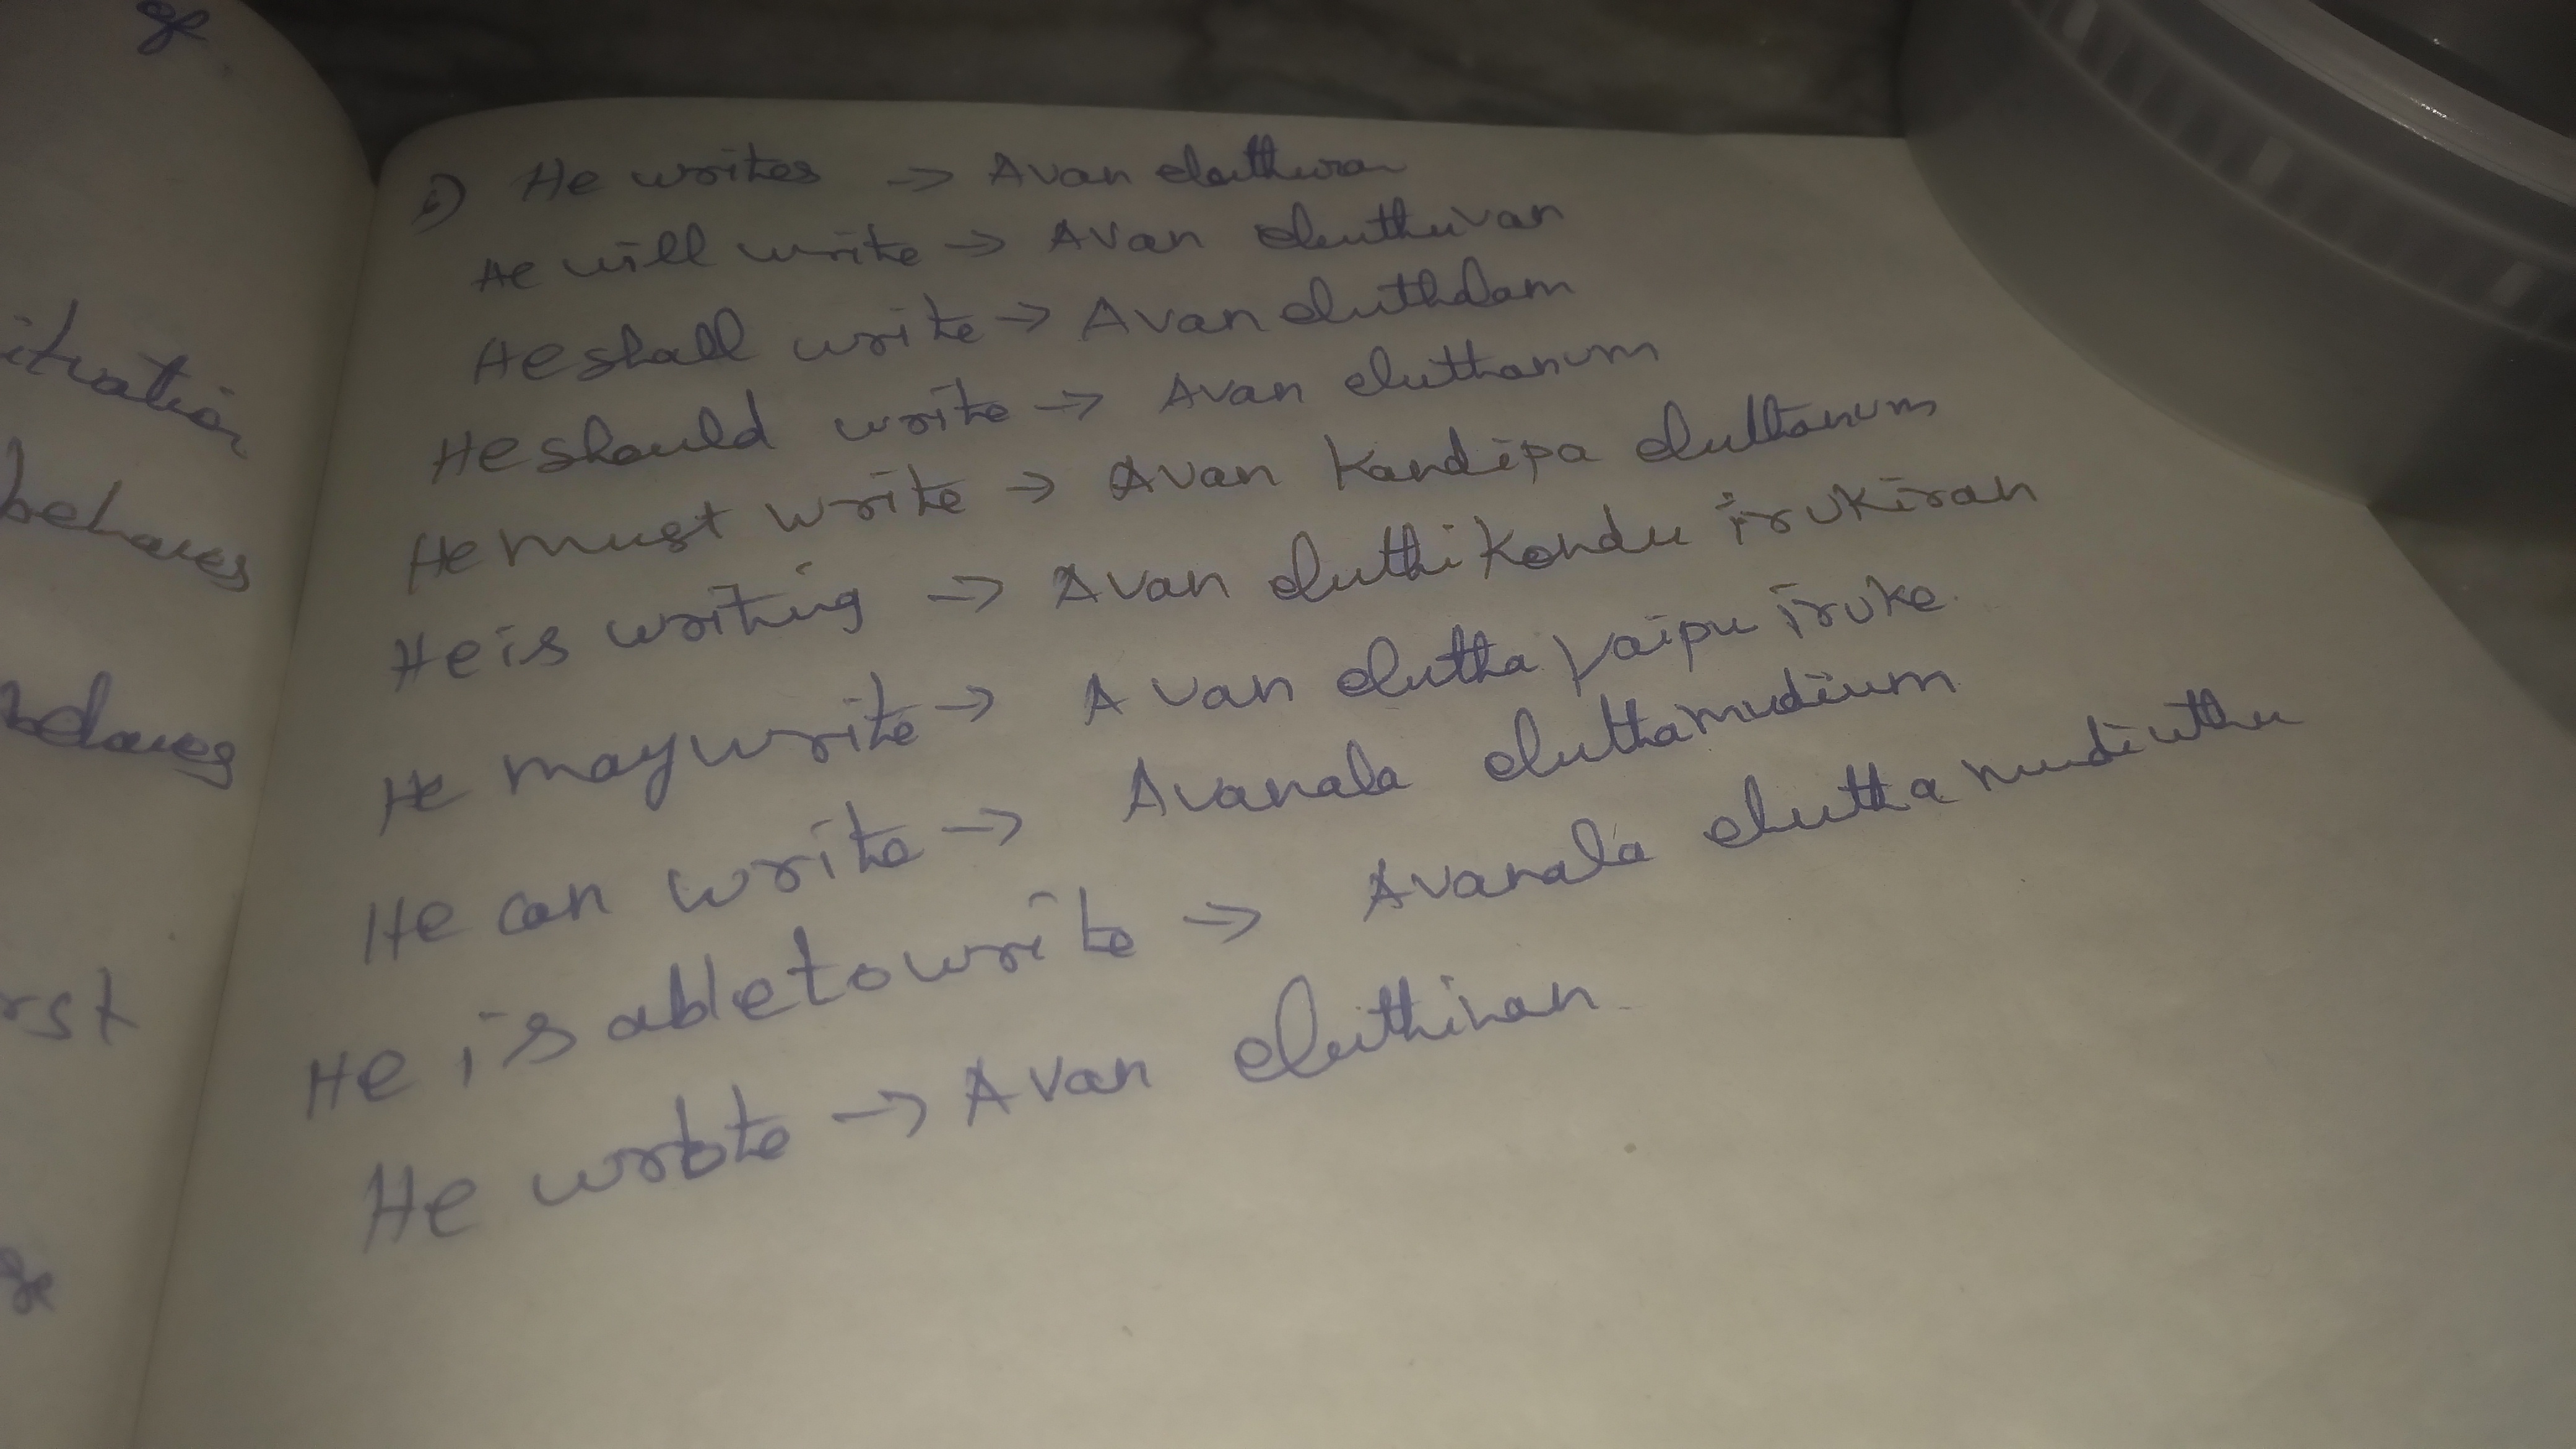 se
itration
behaves
behaves
rst
se
1) He writes → Avan eluthuran
He will write → Avan eluthuvan
He shall write → Avan eluthalam
He should write → Avan eluthanum
He must write → Avan Kandipa eluthanum
He is writing → Avan eluthi Kondu irukiran
He may write → Avan elutha vaipu iruke
He can write → Avanala elutha mudium
He is able to write → Avanala elutha mudiuthu
He wrote → Avan eluthinan.